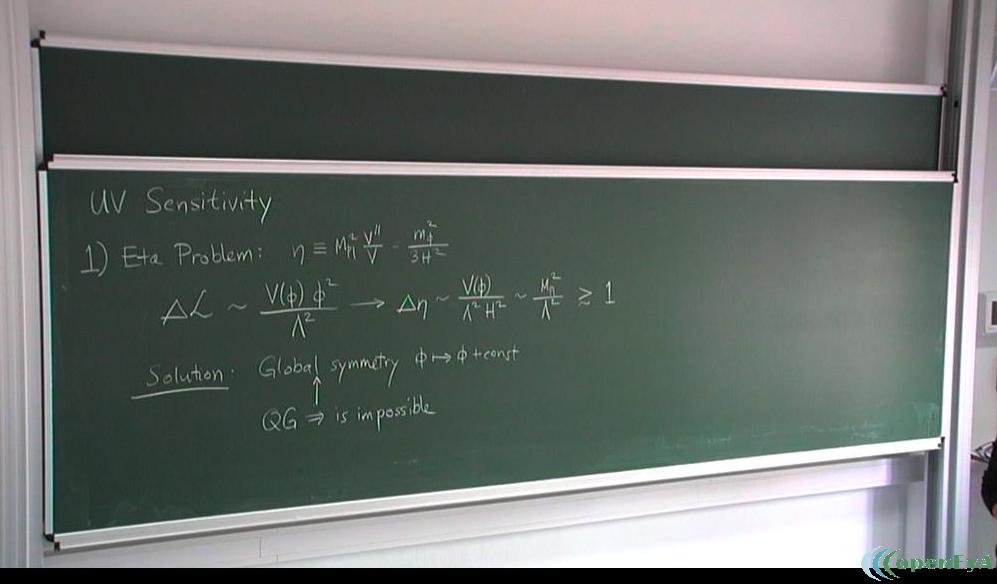 UV Sensitivity
1) Eta Problem: η ≡ M_Pl² V''/V = m_φ²/3H²
Δℒ ~ V(φ) φ²/Λ² → Δη ~ V(φ)/Λ²H² ~ M_Pl²/Λ² ≳ 1
Solution: Global symmetry φ ↦ φ + const
↑
QG ⇒ is impossible
openEyA